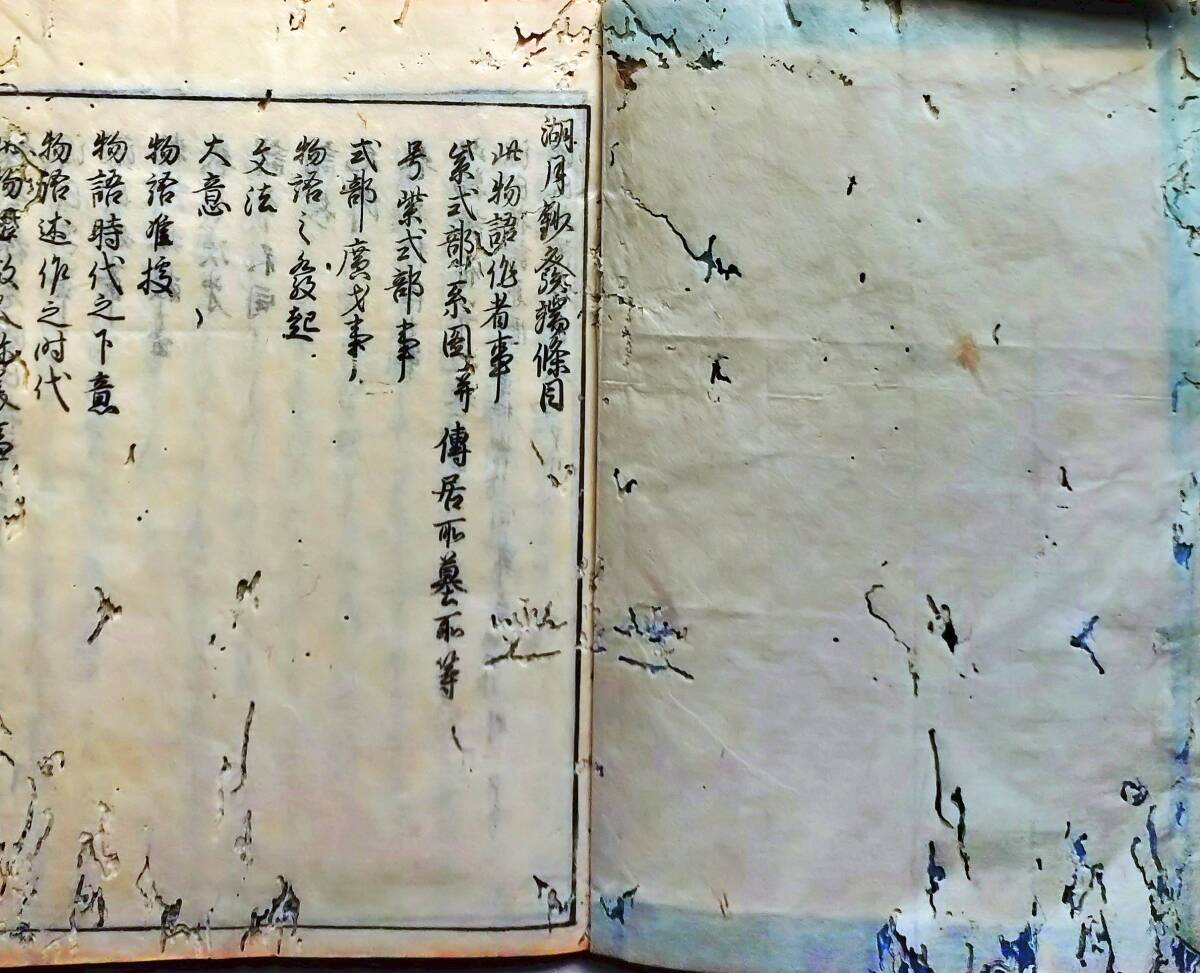 湖月鈔發端條目
此物語作者事
紫式部系圖并傳居所墓所等
号紫式部事
式部廣才事
物語之發起
文法
大意
物語准據
物語時代之下意
物語述作之时代